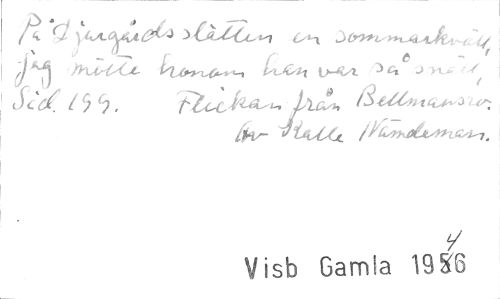 På Djurgårdsslätten en sommarkväll,
jag mötte honom han var så snäll,
Sid. 199. Flickan från Bellmansro.
Av Kalle Nämdeman.
Visb Gamla 1946